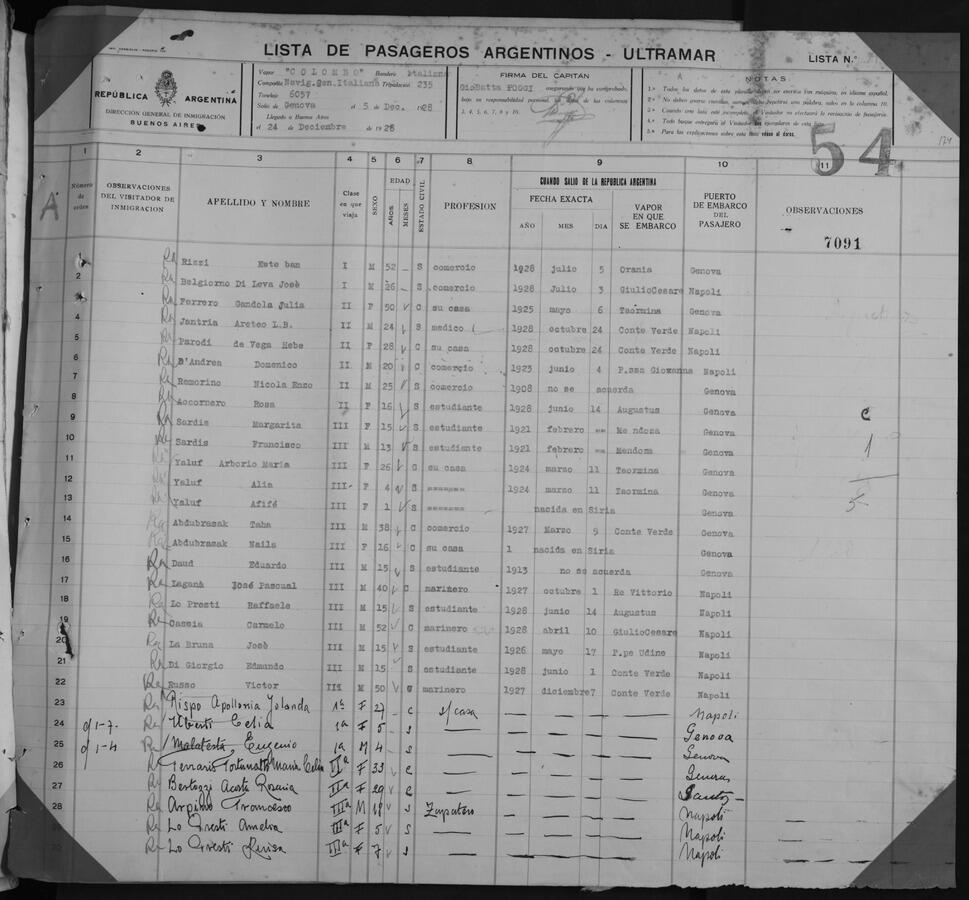 LISTA DE PASAGEROS ARGENTINOS - ULTRAMAR
LISTA N.º
REPÚBLICA ARGENTINA
DIRECCIÓN GENERAL DE INMIGRACIÓN
BUENOS AIRES
Vapor "COLOMBO" Bandera Italiana
Compañía Navig.Gen.Italiana Tripulación 235
Tonelaje 6057
Salió de Genova el 5 Dec. 1928
Llegado a Buenos Aires
el 24 de Deciembre de 1928
FIRMA DEL CAPITÁN
GioBatta FOGGI
2, 4, 5, 6, 7, 9, y 10.
NOTAS
1.ª Todos los datos de esta planilla
5.ª Para las explicaciones sobre esta lista véase al dorso.
54
174
A
1 2 3 4 5 6 7 8 9 10 11
Número de orden
OBSERVACIONES DEL VISITADOR DE INMIGRACION
APELLIDO Y NOMBRE
Clase en que viaja
SEXO
EDAD
AÑOS
MESES
ESTADO CIVIL
PROFESION
CUANDO SALIO DE LA REPUBLICA ARGENTINA
FECHA EXACTA
AÑO MES DIA
VAPOR EN QUE SE EMBARCO
PUERTO DE EMBARCO DEL PASAJERO
OBSERVACIONES
7091
1 Ra Rizzi Esteban I M 52 - S comercio 1928 julio 5 Orania Genova
2 Ra Belgiorno Di Leva Josè I M 26 - S comercio 1928 Julio 3 GiulioCesare Napoli
3 Ra Ferrero Gandola Julia II F 50 C su casa 1925 mayo 6 Taormina Genova
4 Ra Jantria Areteo L.B. II M 24 S medico 1928 octubre 24 Conte Verde Napoli
5 Ra Parodi de Vega Hebe II F 28 C su casa 1928 octubre 24 Conte Verde Napoli
6 Ra D'Andrea Domenico II M 20 C comercio 1923 junio 4 P.ssa Giovanna Napoli
7 Ra Remorino Nicola Enzo II M 25 S comercio 1908 no se acuerda Genova
8 Ra Accornero Rosa II F 16 S estudiante 1928 junio 14 Augustus Genova C
9 Ra Sardis Margarita III F 15 S estudiante 1921 febrero == Mendoza Genova
10 Ra Sardis Francisco III M 13 S estudiante 1921 febrero == Mendoza Genova 1
11 Ra Yaluf Arborio Maria III F 26 C su casa 1924 marzo 11 Taormina Genova
12 Ra Yaluf Alia III F 4 S ======= 1924 marzo 11 Taormina Genova
13 Ra Yaluf Afifé III F 1 S ======= nacida en Siria Genova 5
14 Ra Abdubrasak Taha III M 38 C comercio 1927 Marzo 9 Conte Verde Genova
15 Ra Abdubrasak Naila III F 16 C su casa 1 nacida en Siria Genova
16 Ra Daud Eduardo III M 15 S estudiante 1913 no se acuerda Genova
17 Ra Laganà José Pascual III M 40 C marinero 1927 octubre 1 Re Vittorio Napoli
18 Ra Lo Presti Raffaele III M 15 S estudiante 1928 junio 14 Augustus Napoli
19 Ra Cascia Carmelo III M 52 C marinero 1928 abril 10 GiulioCesare Napoli
20 Ra La Bruna Josè III M 15 S estudiante 1926 mayo 17 P.pe Udine Napoli
21 Ra Di Giorgio Edmundo III M 15 S estudiante 1928 junio 1 Conte Verde Napoli
22 Ra Russo Victor III M 50 C marinero 1927 diciembre7 Conte Verde Napoli
23 Ra Rispo Apollonia Jolanda 1ª F 27 - c s/casa Napoli
24 d 1-7. Ra Uberti Celia 1ª F 5 - s Genova
25 d 1-4 Ra Malatesta Eugenio 1ª M 4 - s Genova
26 Ra Ferraris Fortunatto Maria Celia IIª F 33 c Genova
27 Ra Bertozzi Acosta Rosaria IIª F 29 c Santos
28 Ra Arpino Francesco IIIª M 18 s Zapatero Napoli
Ra Lo Presti Amelia IIIª F 5 s Napoli
Ra Lo Presti IIIª F 7 s Napoli